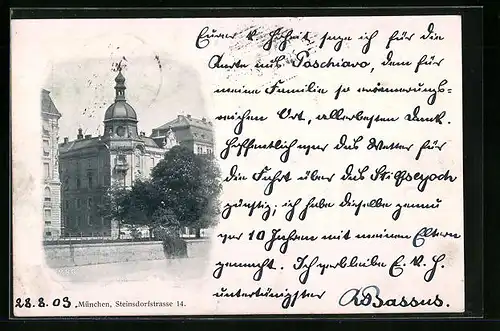 Eurer K. Hoheit sage ich für die
Karte aus Poschiavo, dem für
meine Familie so erinnerungs=
reichen Ort, allerbesten Dank.
Hoffentlich war das Wetter für
die Fahrt über das Stilfserjoch
günstig; ich habe dieselbe genau
vor 10 Jahren mit meinen Eltern
gemacht. Ich verbleibe E. K. H.
unterthänigster Bassus.
28.8.03. München, Steinsdorfstrasse 14.